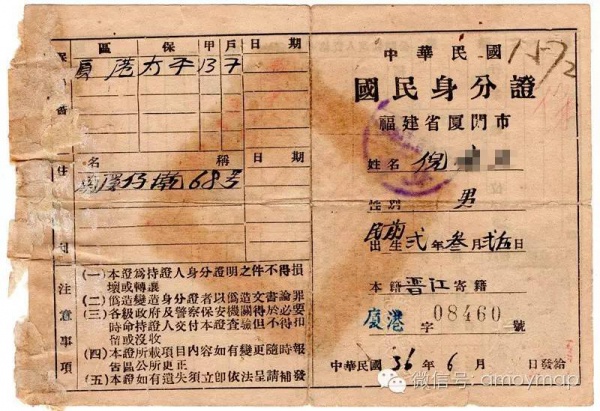 區 保 甲 戶 日 期
廈港 太平 13 7
住
名 稱 日 期
68号
注意事項
(一)本證為持證人身分證明之件不得損
壞或轉讓
(二)偽造變造身分證者以偽造文書論罪
(三)各級政府及警察保安機關得於必要
時命持證人交付本證查驗但不得扣
留或沒收
(四)本證所載項目內容如有變更隨時報
請區公所更正
(五)本證如有遺失須立卽依法呈請補發
中華民國
國民身分證
福建省厦門市
姓名 倪
性別 男
民前
出生 弍年 叁月 弍五日
本籍 晋江 寄籍
廈港 字 08460 號
中華民國 36年 6月 日發給
微信号: ampymap